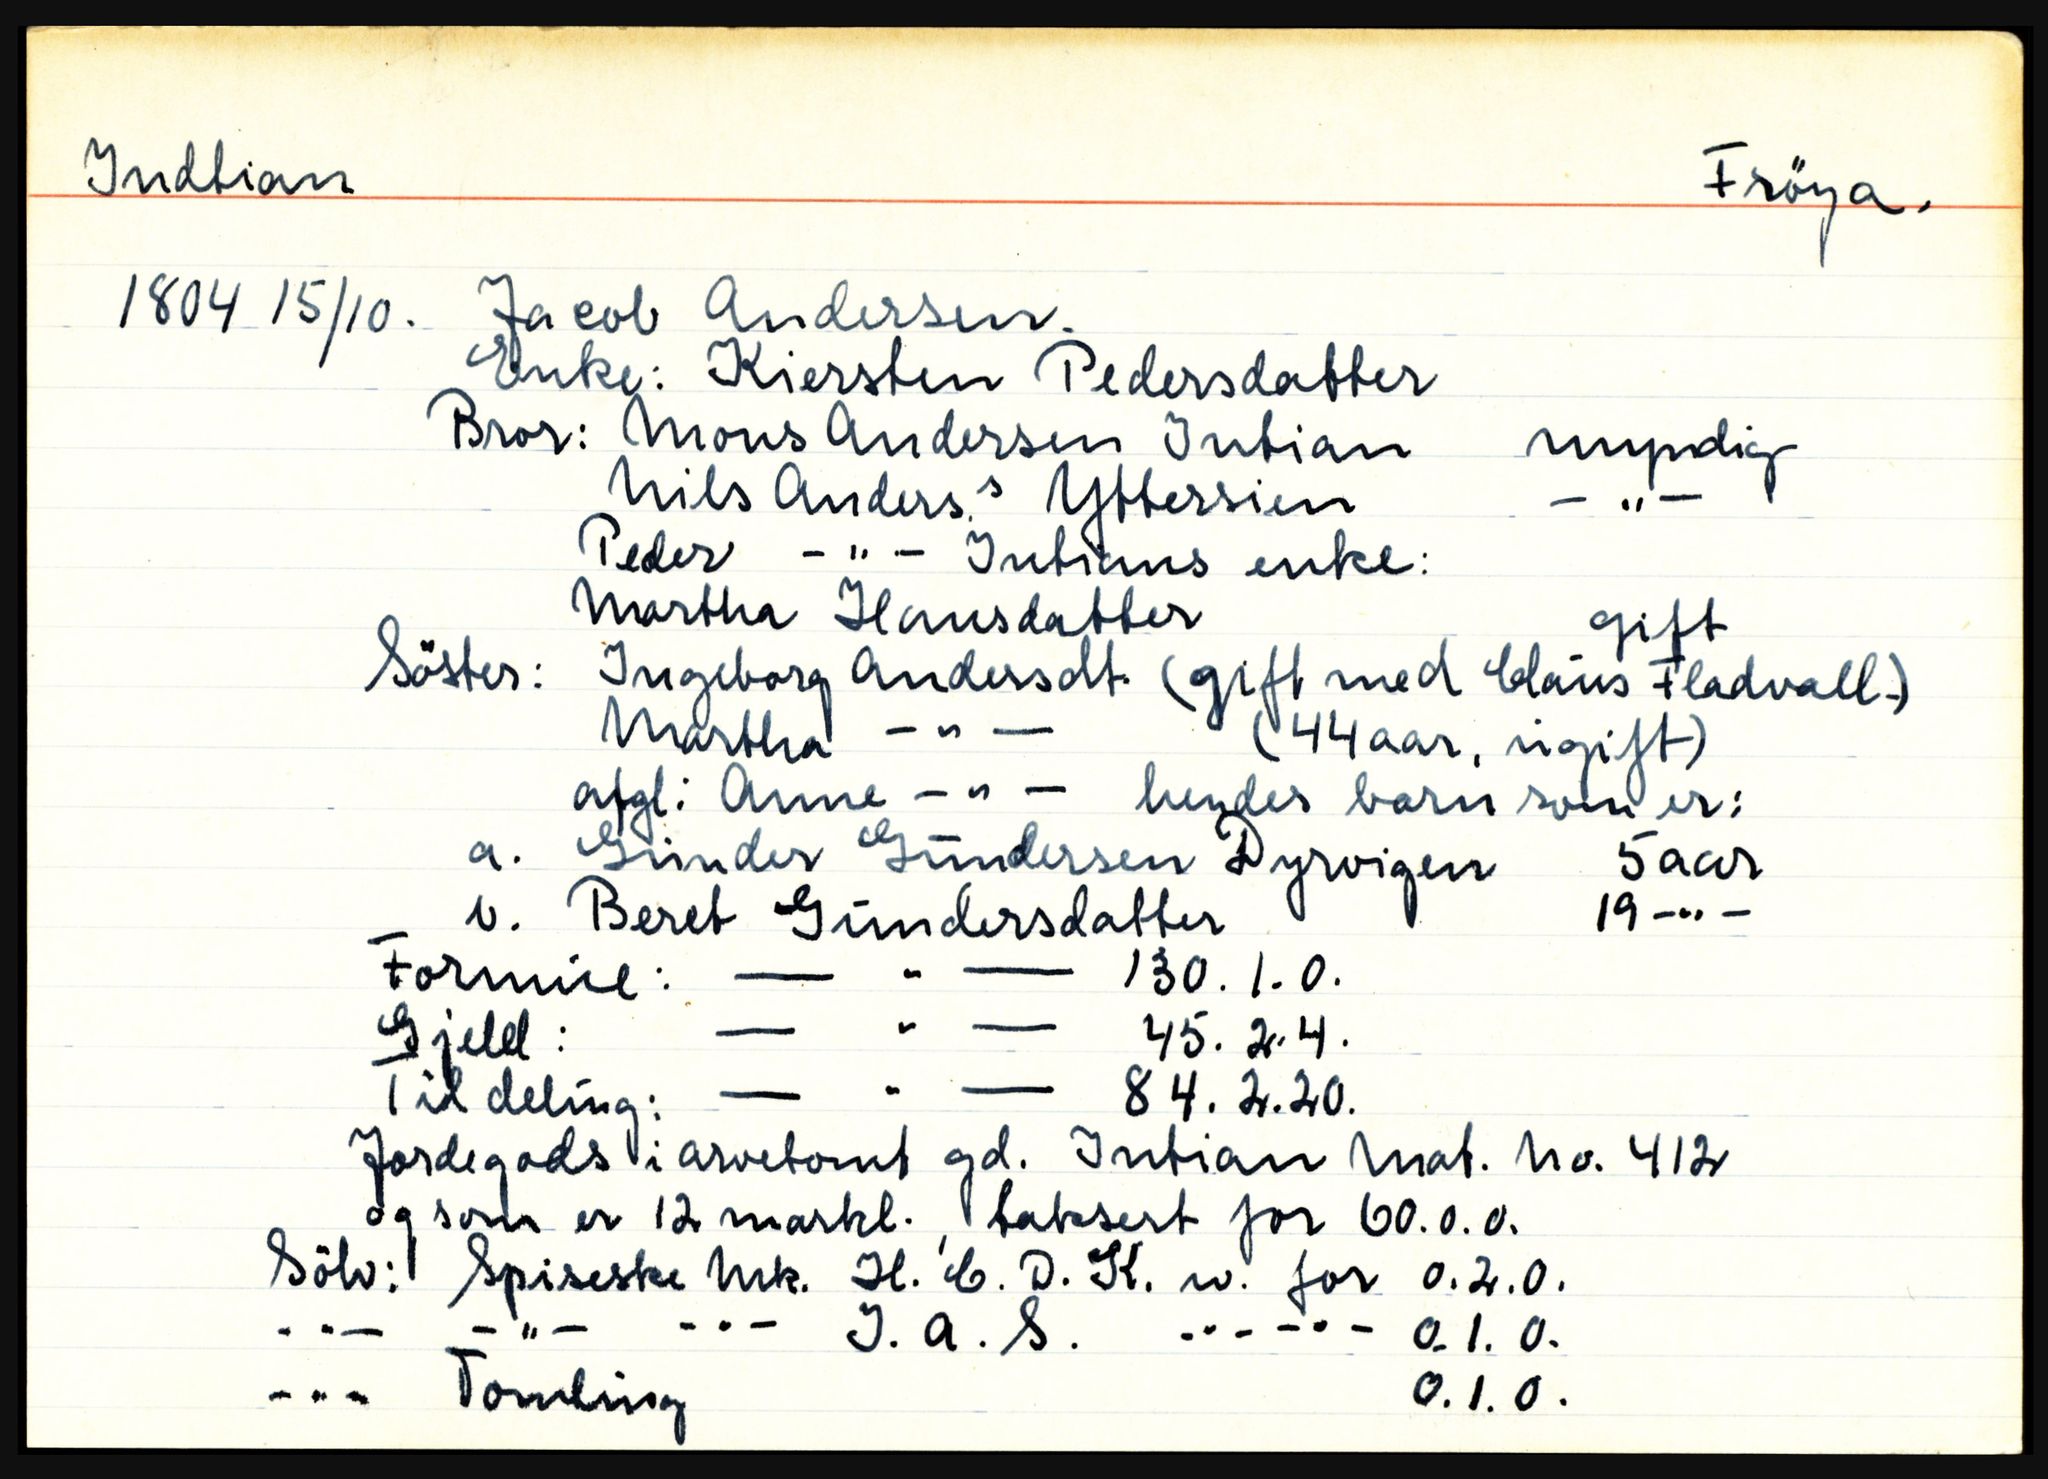 Indtian Fröya.
1804 15/10. Jacob Andersen.
Enke: Kiersten Pedersdatter
Bror: Mons Andersen Intian myndig
Nils Anders.s Yttersien - " -
Peder - " - Intians enke:
Martha Hansdatter gift
Söster: Ingeborg Andersdt. (gift med Claus Fladvall.)
Martha - " - (44 aar, ugift)
afgl: Anne - " - hendes barn som er:
a. Gunder Gundersen Dyrvigen 5 aar
b. Beret Gundersdatter 19 - " -
Formue: — " — 130. 1. 0.
Gjeld: — " — 45. 2. 4.
Til deling: — " — 84. 2. 20.
Jordegods i arvetomt gd. Intian Mat. No. 412
og som er 12 markl., taksert for 60. 0. 0.
Sölv: Spiseske Mk. H. C. D. K. w. for 0. 2. 0.
- " - - " - - " - J. A. S. - " - - " - 0. 1. 0.
- " - Tomling 0. 1. 0.